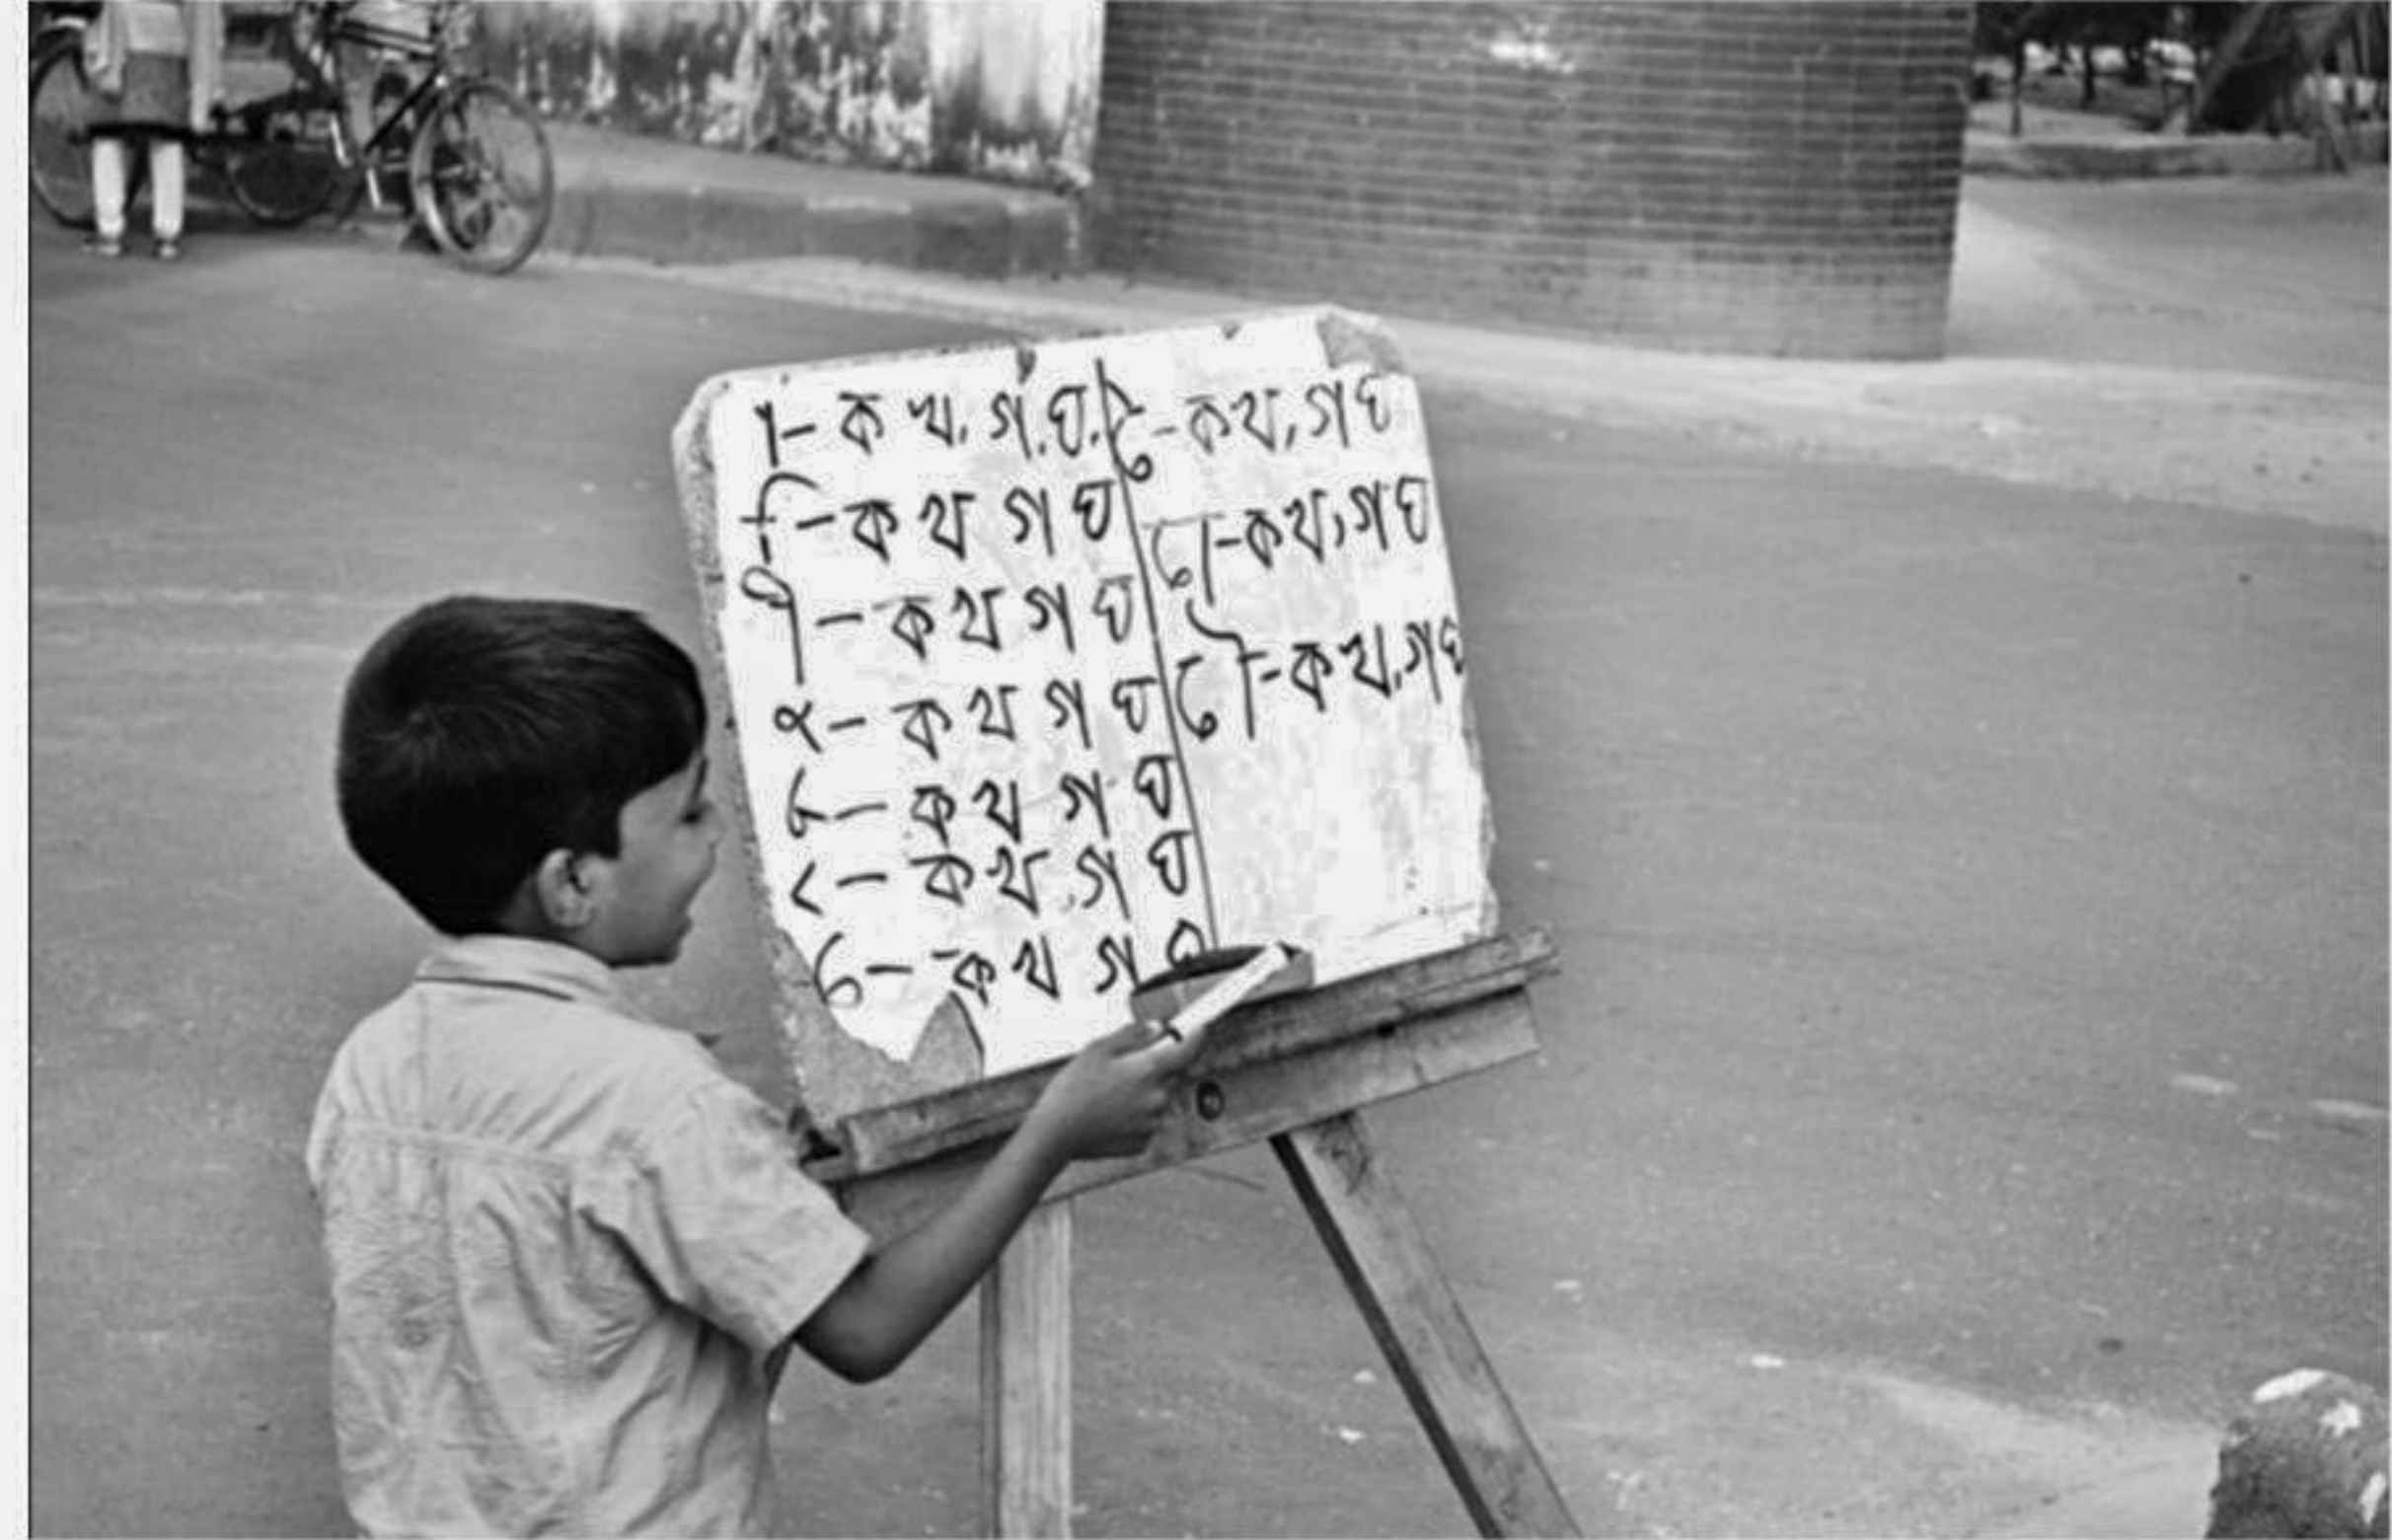 া- ক খ, গ, ঘ,
ি - ক খ গ ঘ
ী - ক খ গ ঘ
ু - ক খ গ ঘ
ূ - ক খ গ ঘ
ৃ - ক খ গ ঘ
ে - ক খ গ ঘ
ৈ - ক খ, গ ঘ
ো - ক খ, গ ঘ
ৌ - ক খ, গ ঘ